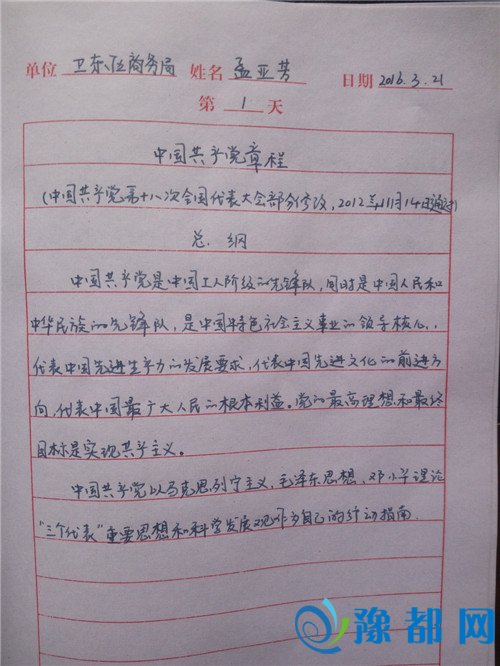 单位 卫东区商务局 姓名 孟亚芳 日期 2016.3.21
第 1 天
中国共产党章程
(中国共产党第十八次全国代表大会部分修改,2012年11月14日通过)
总纲
中国共产党是中国工人阶级的先锋队,同时是中国人民和
中华民族的先锋队,是中国特色社会主义事业的领导核心,
代表中国先进生产力的发展要求,代表中国先进文化的前进方
向,代表中国最广大人民的根本利益。党的最高理想和最终
目标是实现共产主义。
中国共产党以马克思列宁主义、毛泽东思想、邓小平理论
“三个代表”重要思想和科学发展观作为自己的行动指南.
豫都网